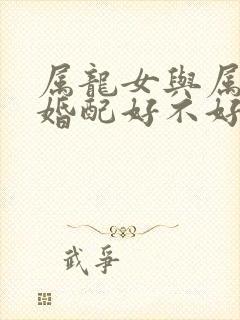 属龍女與属
婚配好不好
武爭